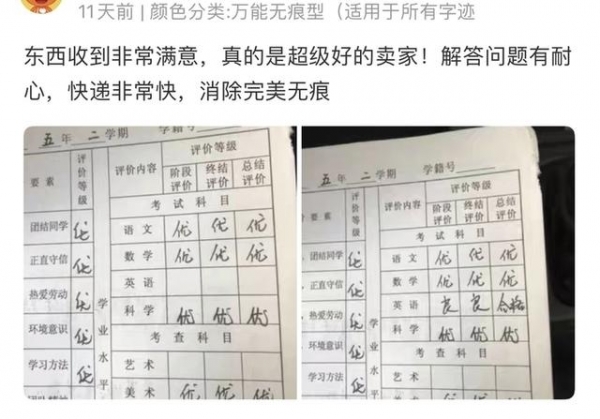 11天前 | 颜色分类:万能无痕型（适用于所有字迹
东西收到非常满意，真的是超级好的卖家！解答问题有耐
心，快递非常快，消除完美无痕
五 年 二 学期 学籍号
要素 评价等级 评价内容 评价等级
阶段评价 终结评价 总结评价
考试科目
团结同学 优 语文 优 优 优
正直守信 优 数学 优 优 优
热爱劳动 优 英语
学业水平
环境意识 优 科学 优 优 优
考查科目
学习方法 优 艺术
美术 优 优 优
五 年 二 学期 学籍号
要素 评价等级 评价内容 评价等级
阶段评价 终结评价 总结评价
考试科目
团结同学 优 语文 优 优 优
正直守信 优 数学 优 优 优
热爱劳动 优 英语 良 良 合格
学业水平
环境意识 优 科学 优 优 优
考查科目
学习方法 优 艺术
美术 优 优 优